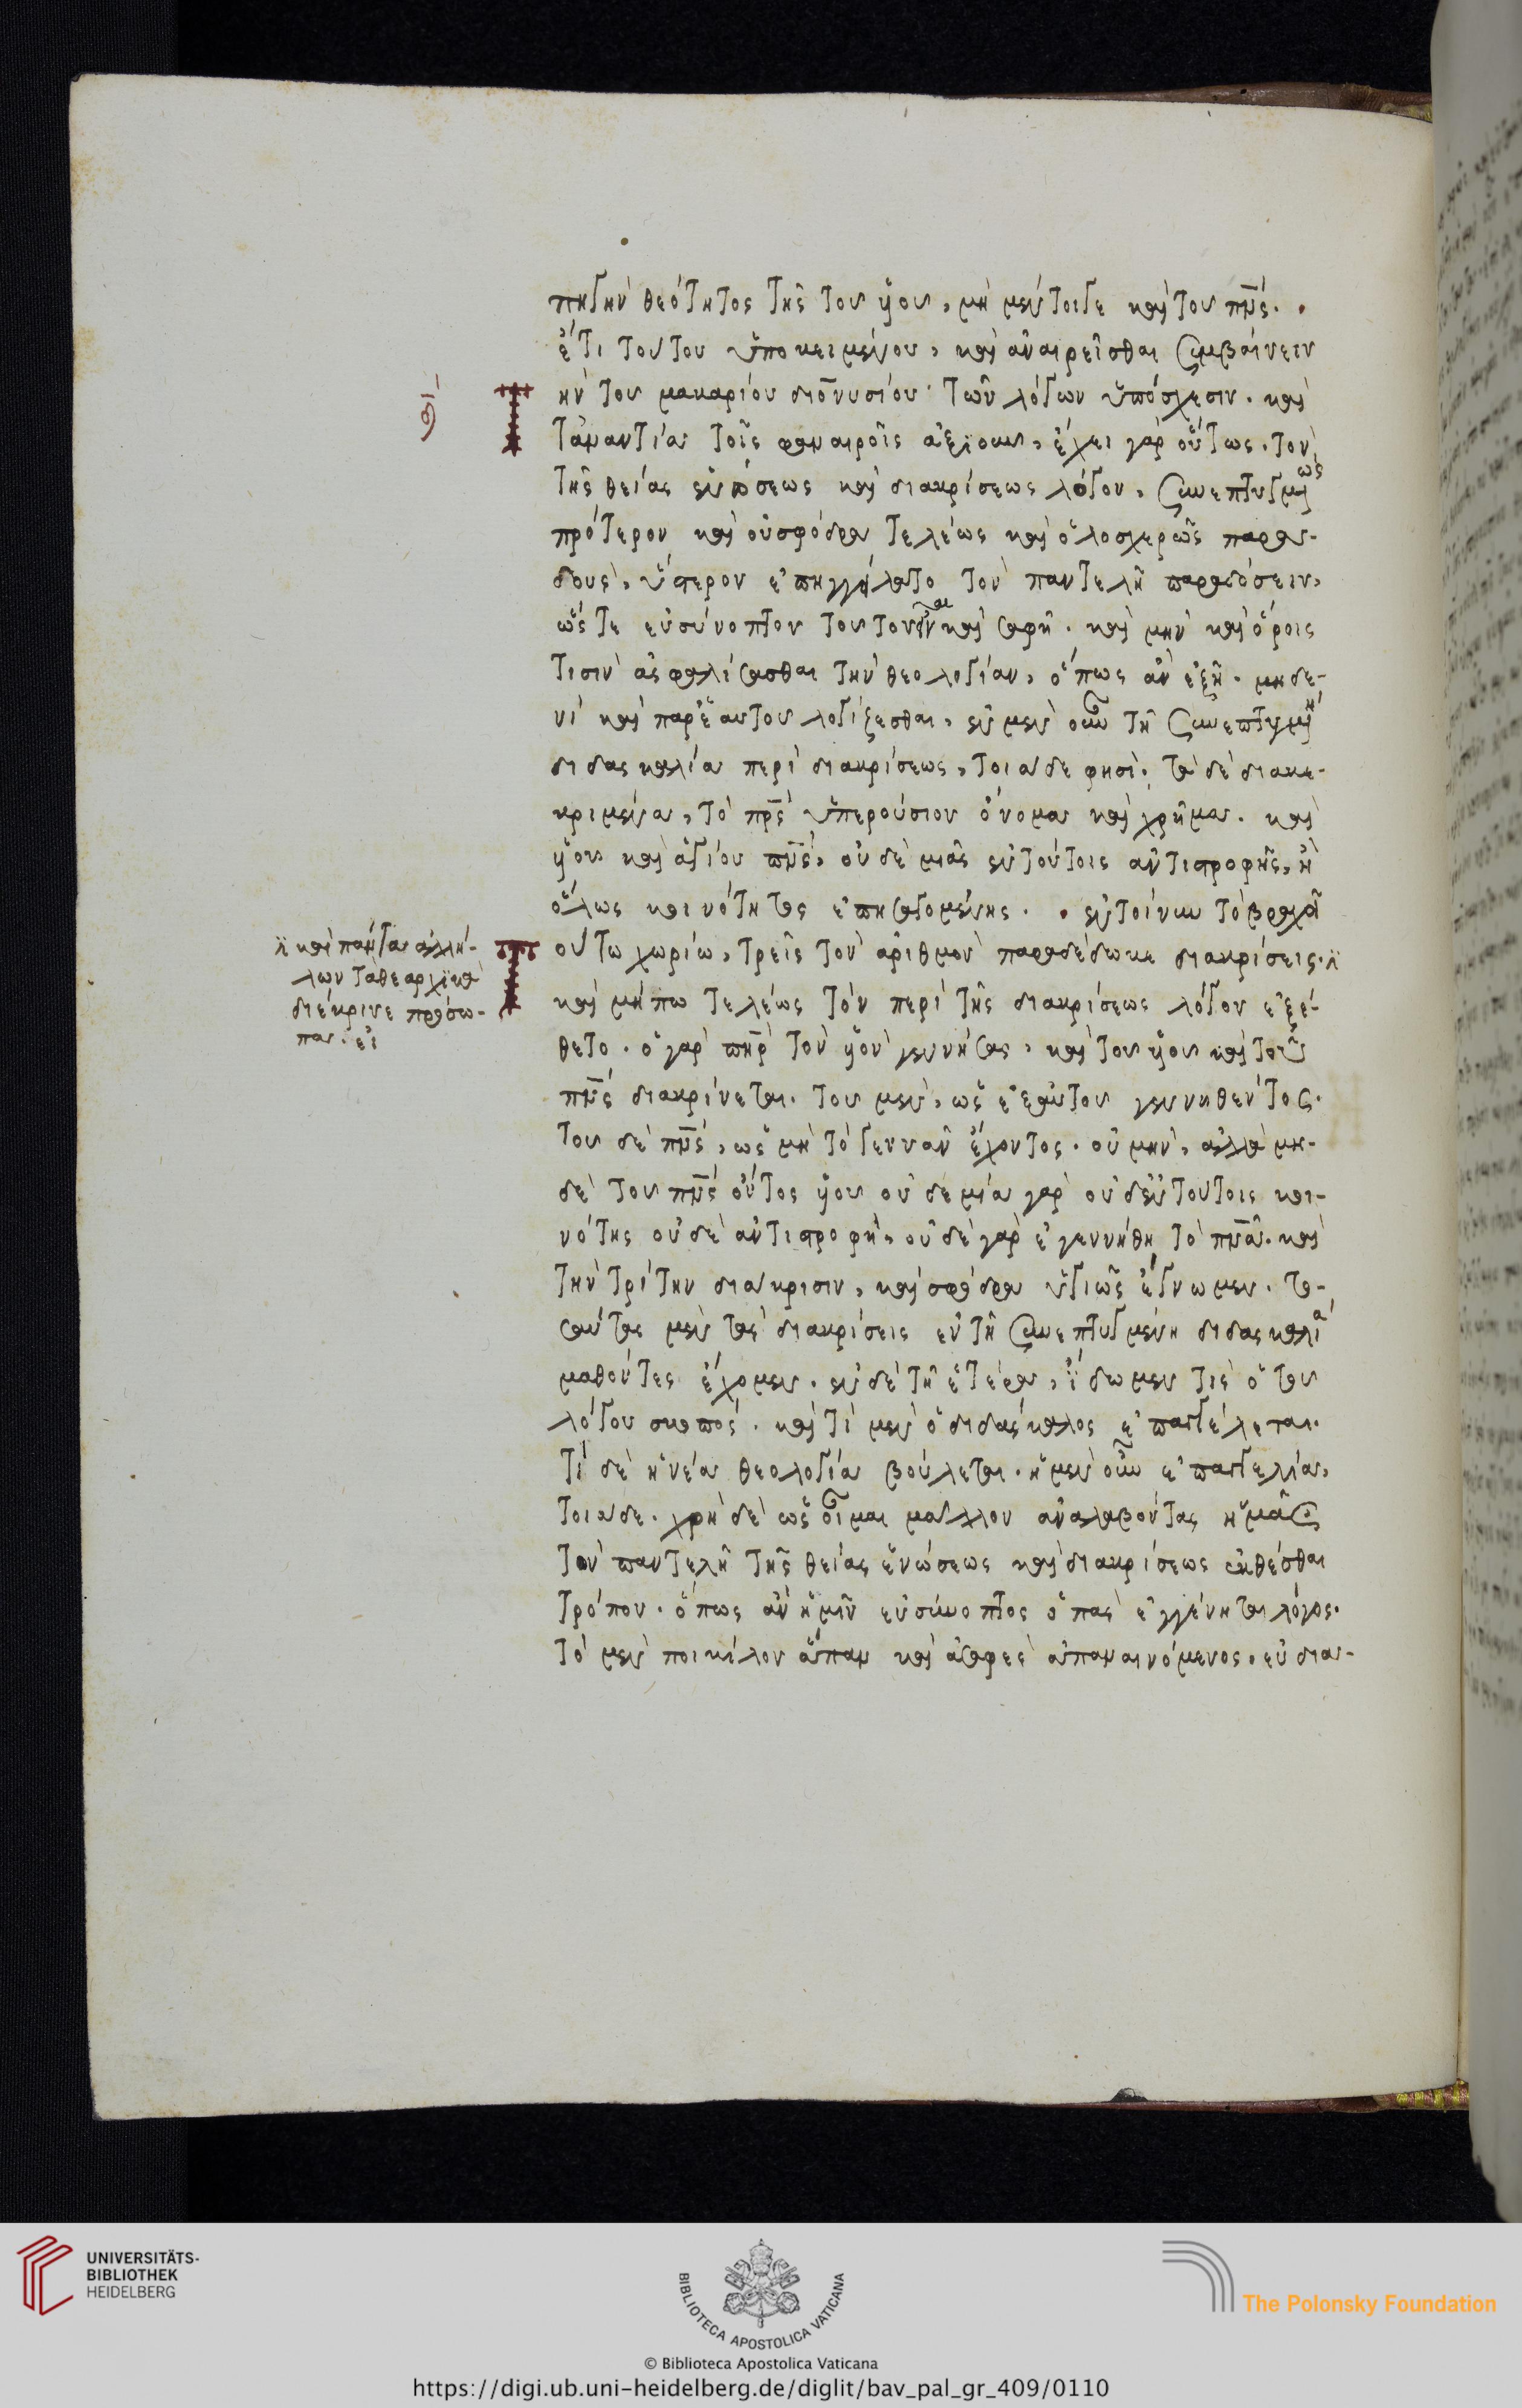 πηγὴν θεότητος τῆς τοῦ ὑοῦ, μὴ μέντοιγε καὶ τοῦ πν̅ς.
ἔτι τούτου ὑποκειμένου, καὶ ἀναιρεῖσθαι συμβαίνειν
θι
Τ ὴν τοῦ μακαρίου διονυσίου τῶν λόγων ὑπόσχεσιν. καὶ
τἀναντία τοῖς φανεροῖς ἀξιοῦν, ἔχει γὰρ οὕτως. τὸν
τῆς θείας ἑνώσεως καὶ διακρίσεως λόγον, συνεπτυγμένως
πρότερον καὶ οὐ σφόδρα τελέως καὶ ὁλοσχερῶς παρα-
δοὺς, ὕστερον ἐπηγγείλατο τὸν παντελῆ παραδώσειν,
ὥστε εὐσύνοπτον τοῦτον εἶναι καὶ σαφῆ. καὶ μὴν καὶ ὅροις
τισὶν ἀσφαλίσασθαι τὴν θεολογίαν, ὅπως ἂν ἐξῇ. μηδε-
νὶ καὶ παρ' ἑαυτοῦ λογίζεσθαι, ἐν μὲν οὖν τῇ συνεπτυγμένῃ
διδασκαλία περὶ διακρίσεως, τοιάδε φησὶ. τὰ δὲ διακε-
κριμένα, τὸ πρ̅ς ὑπερούσιον ὄνομα καὶ χρῆμα. καὶ
ὑοῦ καὶ ἁγίου πν̅ς, οὐδὲ μιᾶς ἐν τούτοις ἀντιστροφῆς, ἢ
ὅλως κοινότητος ἐπεισαγομένης. ἐν τοίνυν τὸ βραχεῖ
Τ ούτω χωρίω, τρεῖς τὸν ἀριθμὸν παραδέδωκε διακρίσεις.
καὶ πάντα ἀλλή-
λων τὰ θεαρχικὰ
διέκρινε πρόσω-
πα. εἰ
καὶ μήπω τελέως τὸν περὶ τῆς διακρίσεως λόγον ἐξέ-
θετο. ὁ γὰρ πη̅ρ τὸν ὑὸν γεννήσας, καὶ τοῦ ὑοῦ καὶ τοῦ
πν̅ς διακρίνεται. τοῦ μὲν, ὡς ἐξ αὐτοῦ γεννηθέντος.
τοῦ δὲ πν̅ς, ὡς μὴ τὸ γεννᾶν ἔχοντος. οὐ μὴν, ἀλλὰ μη-
δὲ τοῦ πν̅ς ὄντος ὑοῦ οὐδεμία γὰρ οὐδ' ἐν τούτοις κοι-
νότης οὐδὲ ἀντιστροφὴ, οὐδὲ γὰρ ἐγεννήθη τὸ πν̅α. καὶ
τὴν τρίτην διάκρισιν, καὶ σφόδρα ὑγιῶς ἔγνωμεν. το-
σαύτας μὲν τὰς διακρίσεις ἐν τῇ συνεπτυγμένη διδασκαλία
μαθόντες ἔχομεν. ἐν δὲ τῇ ἑτέρα, ἴδωμεν τίς ὁ τοῦ
λόγου σκοπός. καὶ τί μὲν ὁ διδάσκαλος ἐπαγγέλεται.
τί δὲ ἡ νέα θεολογία βούλεται. ἡ μὲν οὖν ἐπαγγελία,
τοιάδε. χρὴ δὲ ὡς οἶμαι μάλλον ἀναλαβόντας ἡμᾶς
τὸν παντελῆ τῆς θείας ἑνώσεως καὶ διακρίσεως ἐκθέσθαι
τρόπον. ὅπως ἂν ἡμῖν εὐσύνοπτος ὁ πᾶς ἐγγένηται λόγος.
τὸ μὲν ποικίλον ἅπαν καὶ ἀσαφὲς ἀπαναινόμενος. εὐδια-
UNIVERSITÄTS-
BIBLIOTHEK
HEIDELBERG
BIBLIOTECA APOSTOLICA VATICANA
The Polonsky Foundation
© Biblioteca Apostolica Vaticana
https://digi.ub.uni-heidelberg.de/diglit/bav_pal_gr_409/0110